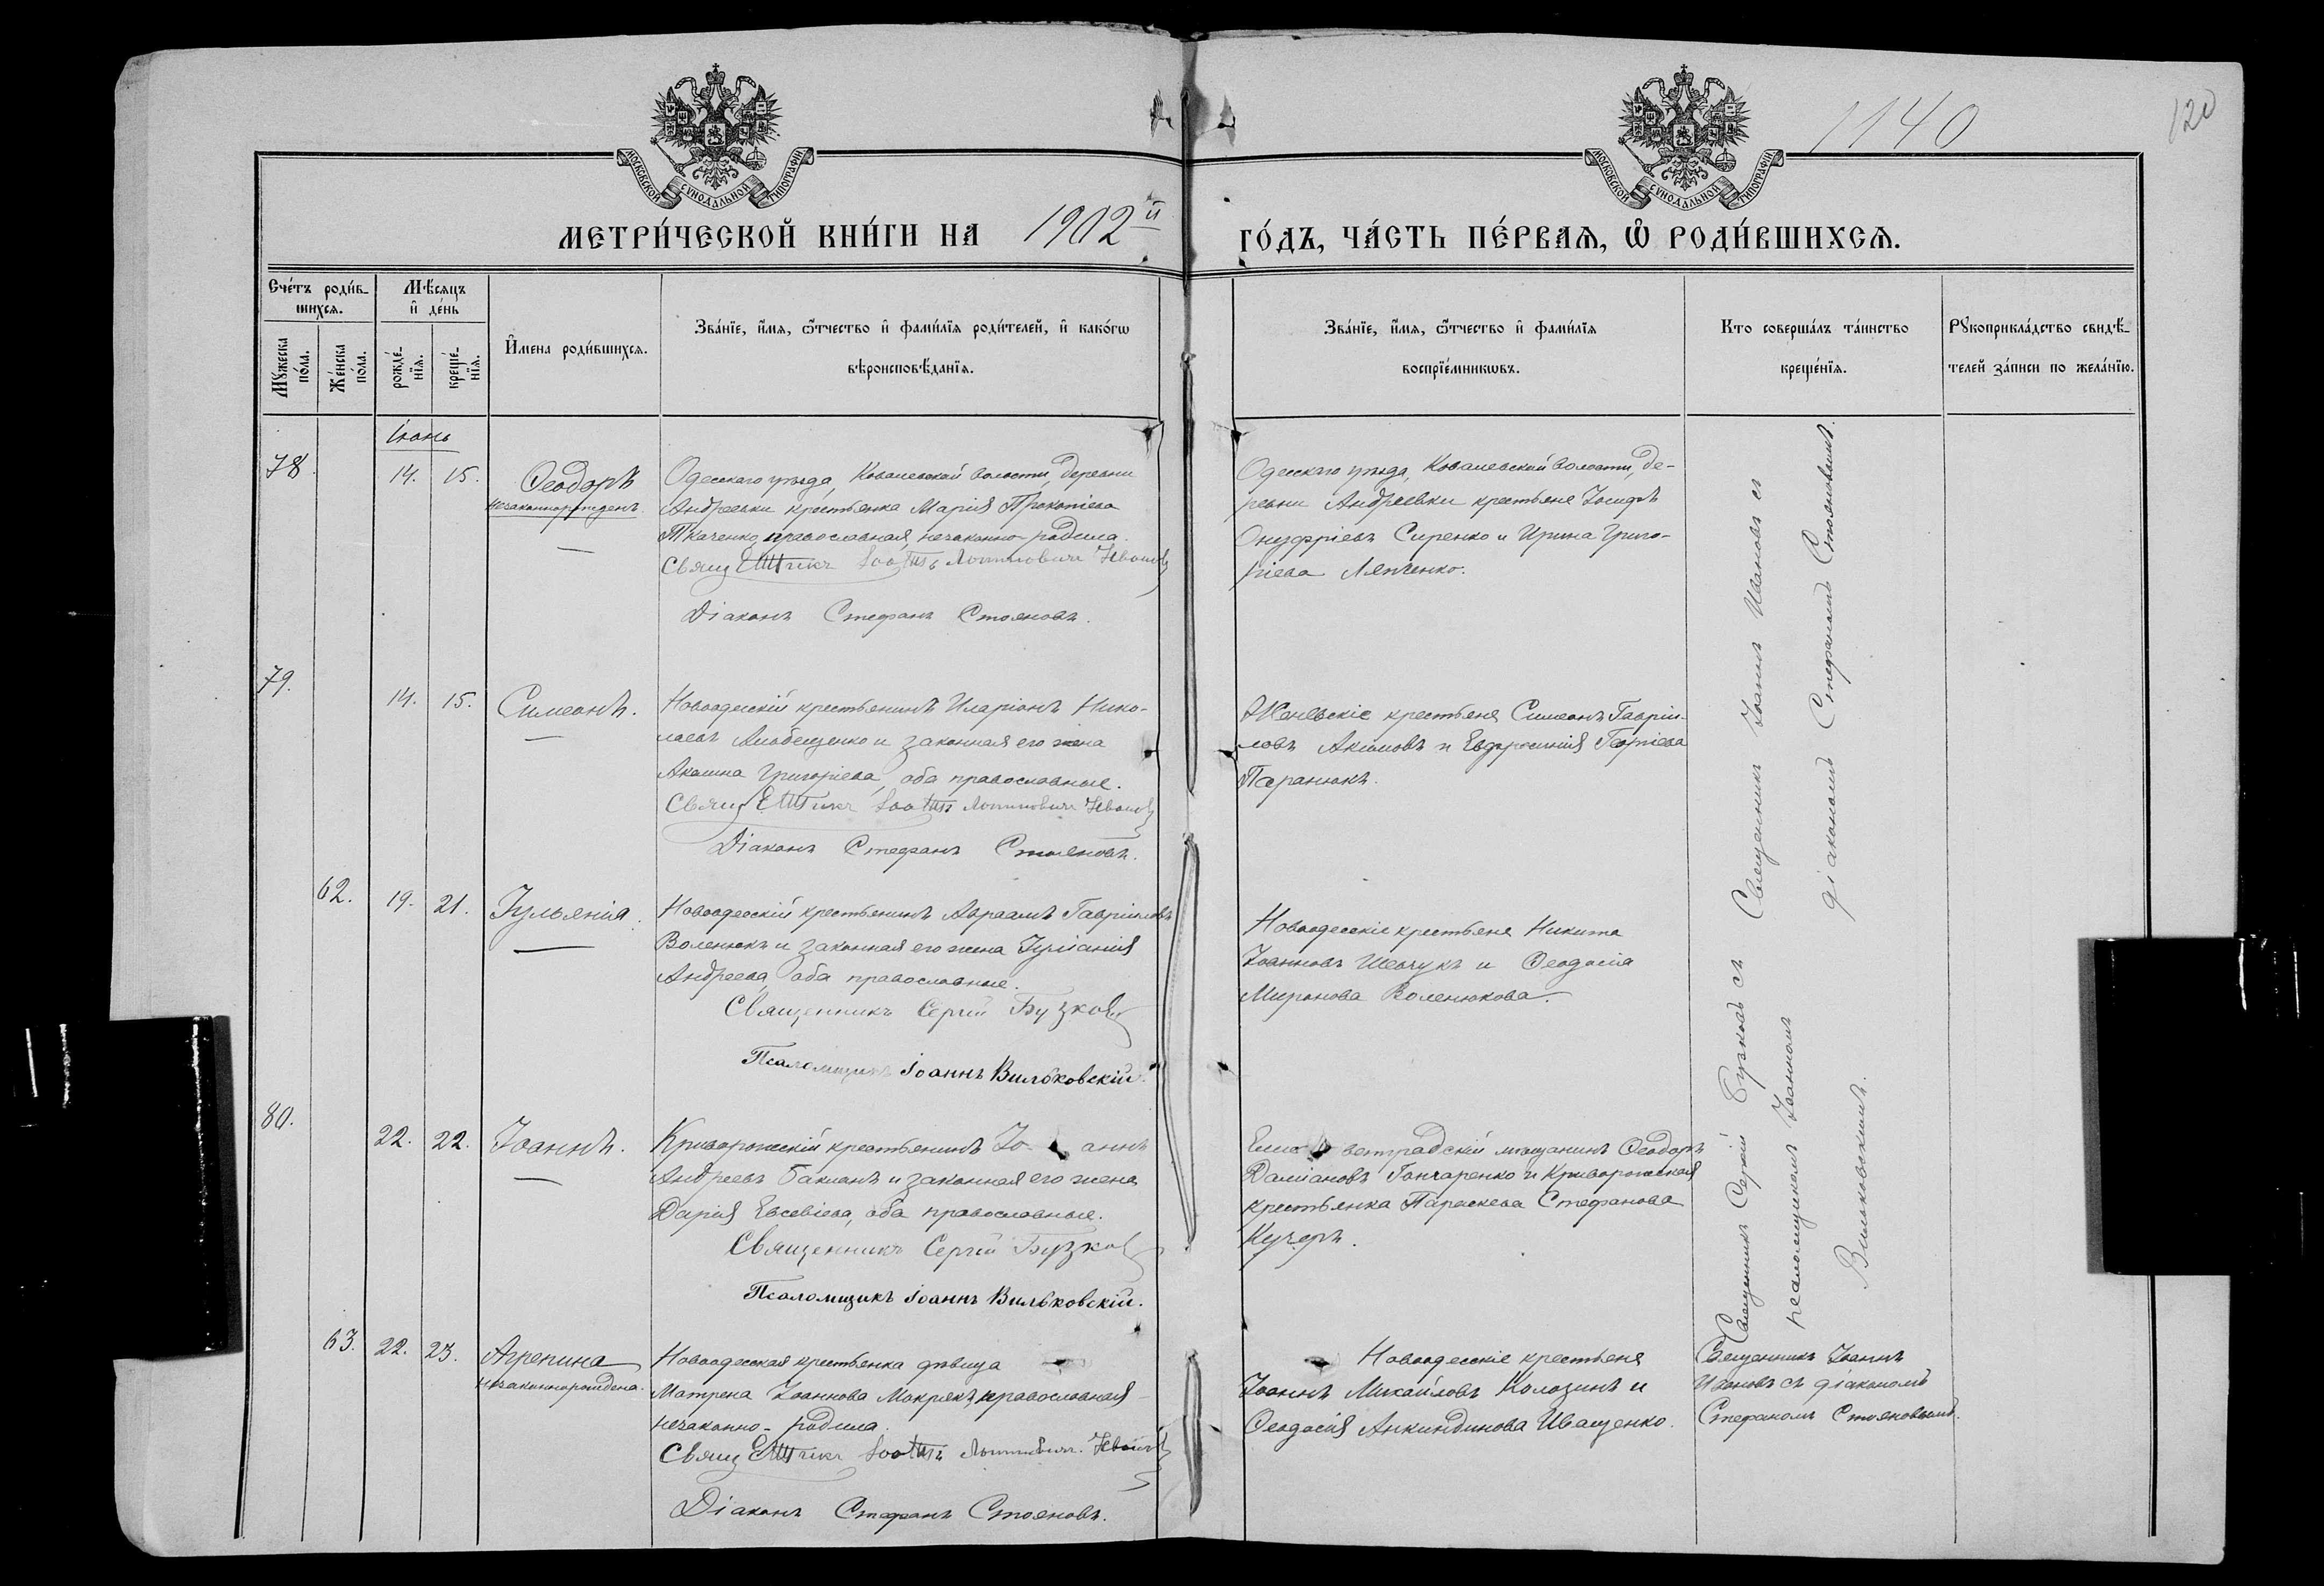 1140
120
МОСКОВСКОЙ СѴНОДАЛЬНОЙ ТИПОГРАФІИ
МОСКОВСКОЙ СѴНОДАЛЬНОЙ ТИПОГРАФІИ
МЕТРИ́ЧЕСКОЙ КНИ́ГИ НА 1902й ГО́ДЪ, ЧА́СТЬ ПЕ́РВАѦ, Ѡ҆ РОДИ́ВШИХСѦ.
Сче́тъ роди́в-
шихсѧ.
Мѣ́сѧцъ
и҆ де́нь
Мꙋ́жеска
по́ла.
Же́нска
по́ла.
рожде́-
нїѧ.
креще́-
нїѧ.
И҆мена роди́вшихсѧ.
Зва́нїе, и҆́мѧ, ѻ҆́тчество и҆ фами́лїѧ роди́телей, и҆ како́гѡ
вѣроисповѣ́данїѧ.
Зва́нїе, и҆́мѧ, ѻ҆́тчество и҆ фами́лїѧ
воспрїе́мникѡвъ.
Кто соверша́лъ та́инство
креще́нїѧ.
Рꙋкоприкла́дство свидѣ́-
телей за́писи по жела́нїю.
Іюнь
78. 14. 15. Ѳеодоръ
незаконнорожденъ
Одесскаго уѣзда, Ковалевской волости, деревни
Андреевки крестьянка Марія Прокопіева
Ткаченко, православная, незаконно родила.
Діаконъ Стефанъ Стояновъ.
Одесскаго уѣзда, Ковалевской волости, де-
ревни Андреевки крестьяне Іосифъ
Онуфріевъ Сиренко и Ирина Григо-
ріева Ляпченко.
Священникъ Іоаннъ Ивановъ съ
діакономъ Стефаномъ Стояновымъ.
79. 14. 15. Симеонъ.
Новоодесскій крестьянинъ Иларіонъ Нико-
лаевъ и законная его жена
Акилина Григоріева, оба православные.
Діаконъ Стефанъ Стояновъ.
крестьяне Симеонъ Гаврі-
ловъ и Евфросинія Георгіева
Паранюкъ.
62. 19. 21. Іульянія.
Новоодесскій крестьянинъ Авраамъ Гавріиловъ
Воленюкъ и законная его жена Іуліанія
Андреева, оба православные.
Священникъ Сергій Бузковъ
Псаломщикъ Іоаннъ Вильковскій.
Новоодесскіе крестьяне Никита
Іоанновъ Шевчукъ и Ѳеодосія
Миронова Воленюкова.
Священникъ Сергій Бузковъ съ
псаломщикомъ Іоанномъ
Вильковскимъ.
80. 22. 22. Іоаннъ.
Криворожскій крестьянинъ Іо- аннъ
Андреевъ Бакланъ и законная его жена
Дарія Евсевіева, оба православные.
Священникъ Сергій Бузковъ
Псаломщикъ Іоаннъ Вильковскій.
мѣщанинъ Ѳеодоръ
Даміановъ Гончаренко и Криворожская
крестьянка Параскева Стефанова
Кучеръ.
63. 22. 23. Агрепина
незаконнорождена.
Новоодесская крестьянка дѣвица
Матрена Іоаннова Мокрякъ, православная
незаконно-родила.
Діаконъ Стефанъ Стояновъ.
Новоодесскіе крестьяне
Іоаннъ Михайловъ Колозинъ и
Ѳеодосія Анкиндинова Иващенко.
Священникъ Іоаннъ
Ивановъ съ діакономъ
Стефаномъ Стояновымъ.